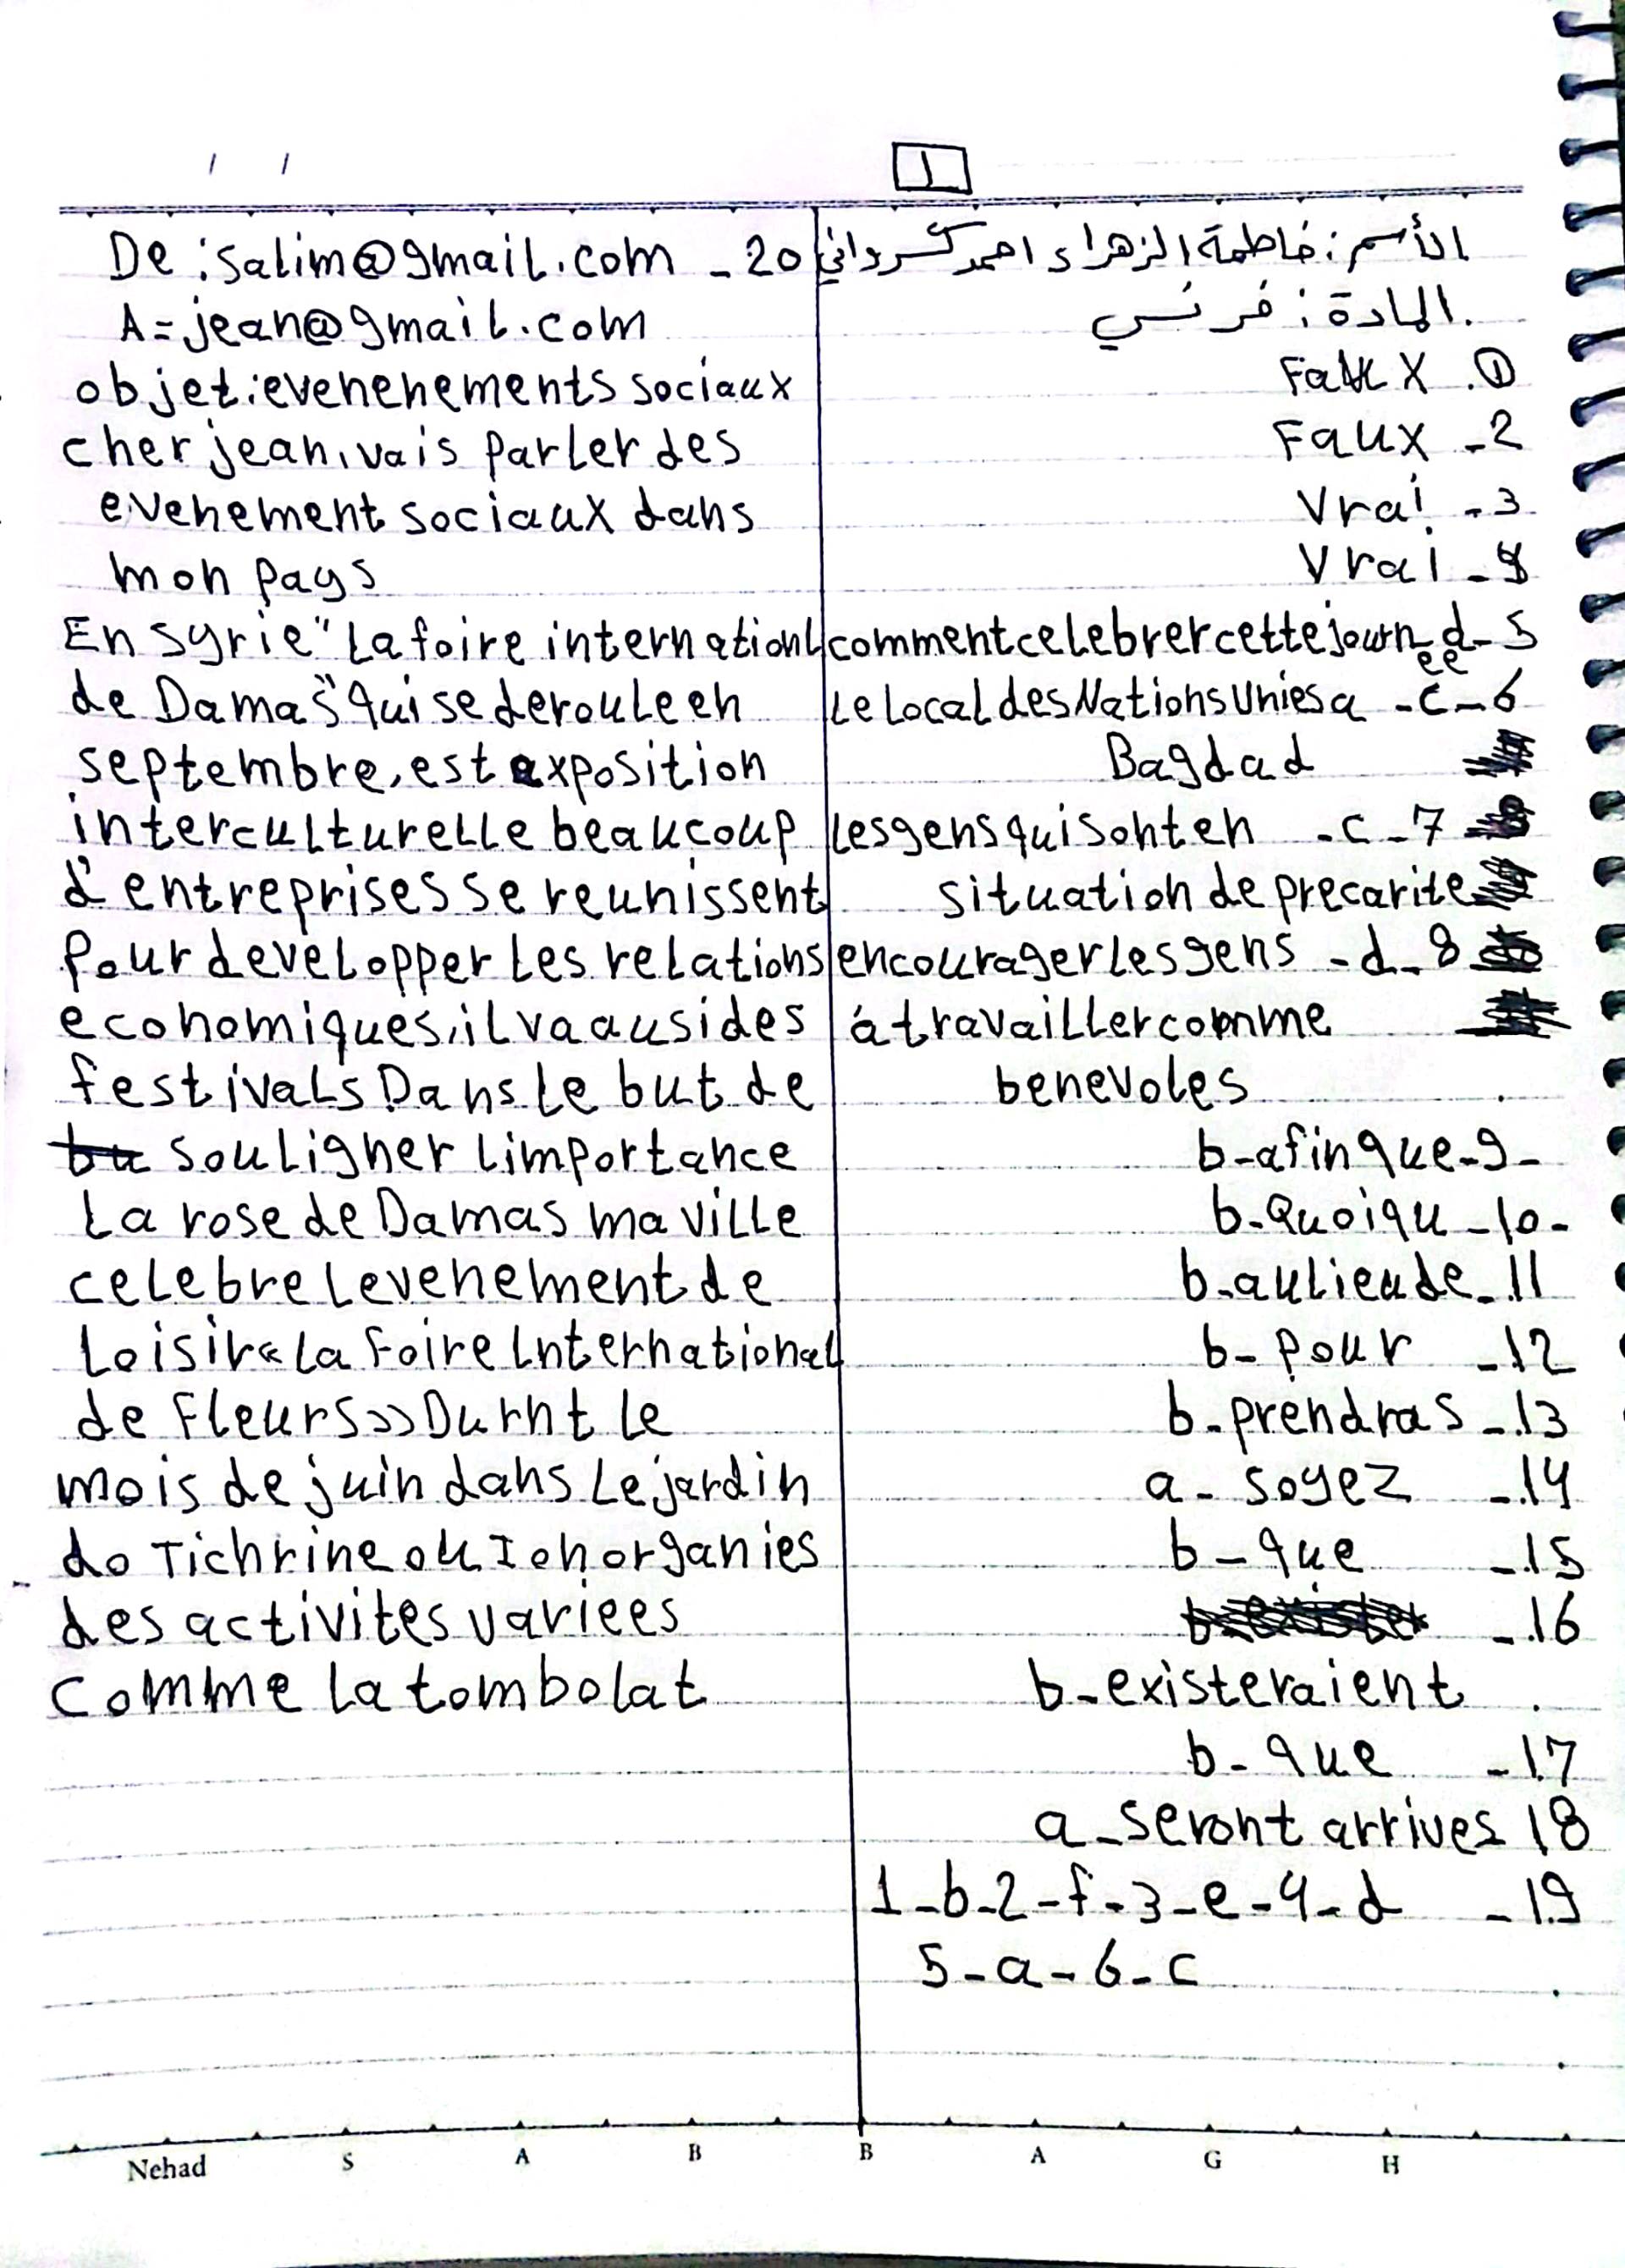 1
الأسم : فاطمة الزهراء احمد كسرواني
المادة : فرنسي
Faux . ①
Faux - 2
Vrai - 3
Vrai - 4
comment celebrer cette journee d - 5
Le Local des Nations Unies a - c - 6
Bagdad
Les gens qui sont en - c - 7
situation de precarite
encourager les gens - d - 8
á travailler comme
benevoles
b - afin que - 9 -
b - Quoiqu - 10 -
b - au lieu de - 11
b - pour - 12
b - prendras - 13
a - soyez - 14
b - que - 15
- 16
b - existeraient
b - que - 17
a - seront arrives 18
1 - b - 2 - f - 3 - e - 4 - d - 19
5 - a - 6 - c
De : salim@gmail.com - 20
A = jean@gmail.com
objet : evenehements sociaux
cher jean, vais parler des
evenement sociaux dans
mon pays
En syrie " La foire internationl
de Damas" qui se deroule en
septembre, est exposition
interculturelle beaucoup
d'entreprises se reunissent
pour developper les relations
economiques, il va ausi des
festivals Dans le but de
souligner limportance
La rose de Damas ma ville
celebre levenement de
Loisir « La Foire International
de Fleurs » Durnt le
mois de juin dans le jardin
do Tichrine ou I on organies
des activites variees
comme la tombolat
Nehad S A B B A G H